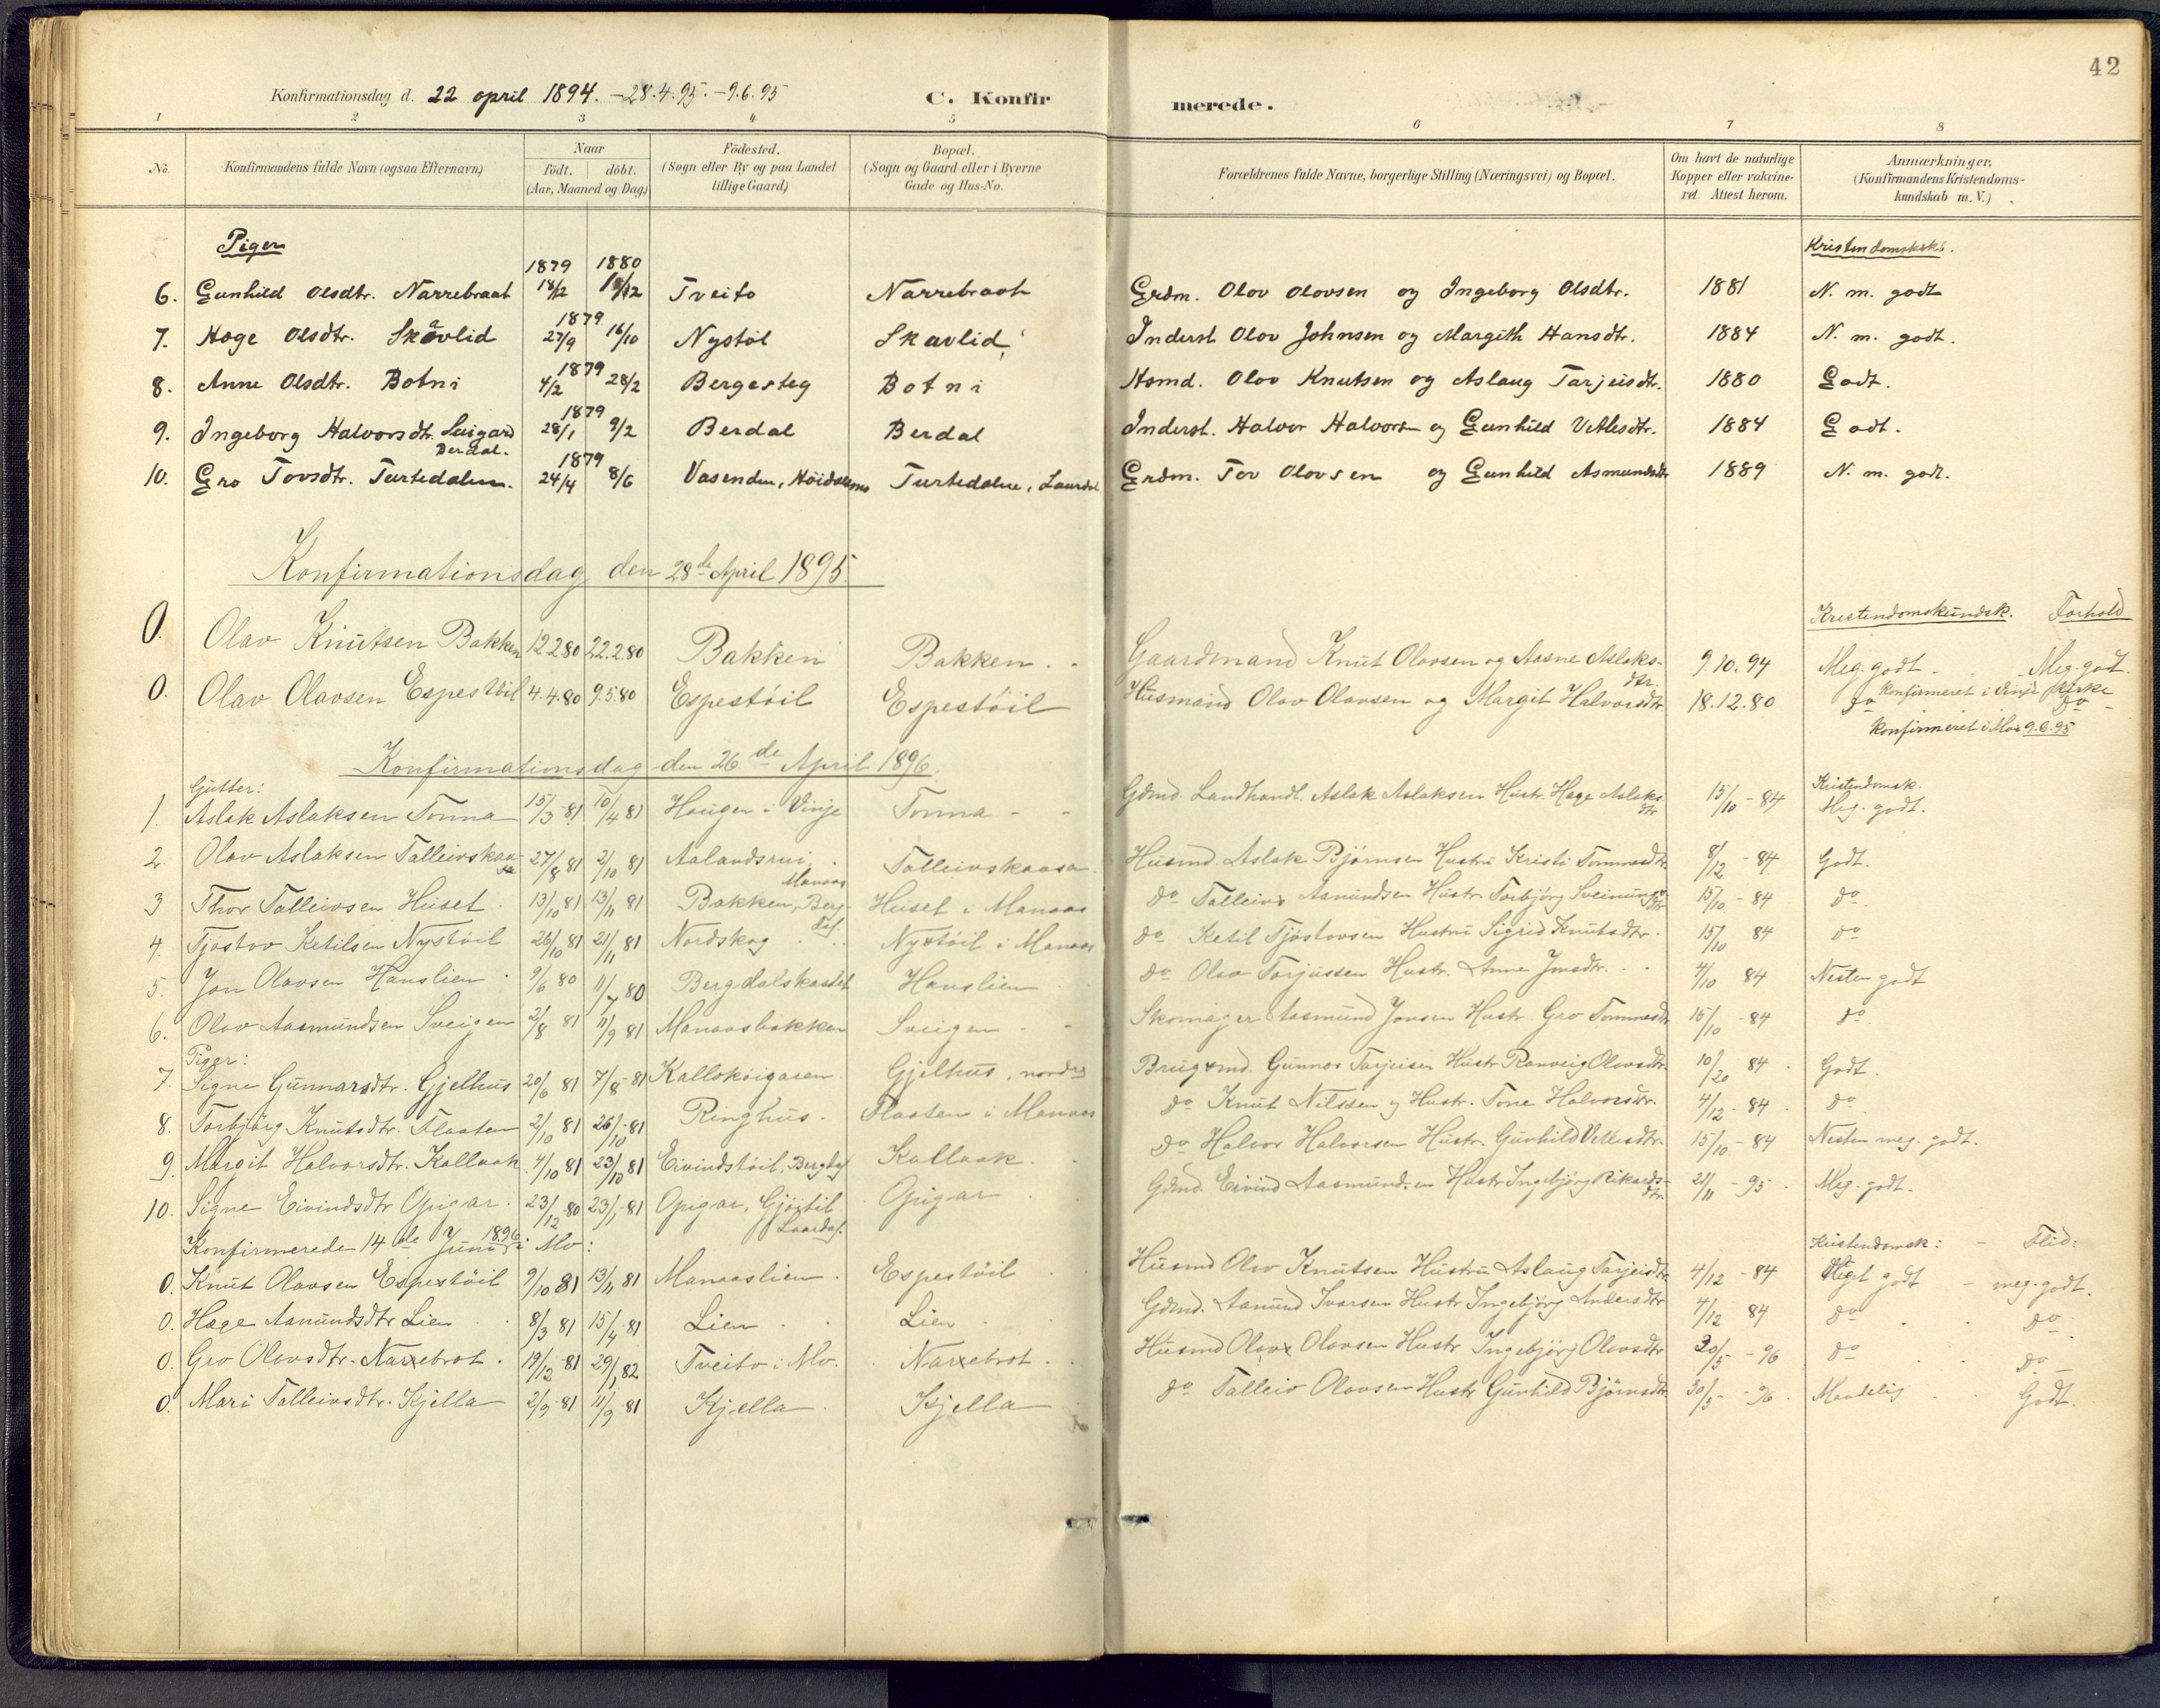 42
Konfirmationsdag d. 22 april 1894. - 28.4.95. - 9.6.95 C. Konfirmerede.
1 2 3 4 5 6 7 8
No. Konfirmandens fulde Navn (ogsaa Efternavn) Naar födt. döbt. (Aar, Maaned og Dag) Födested. (Sogn eller By og paa Landet tillige Gaard) Bopæl. (Sogn og Gaard eller i Byerne Gade og Hus-No. Forældrenes fulde Navne, borgerlige Stilling (Næringsvei) og Bopæl. Om havt de naturlige Kopper eller vakcineret. Attest herom. Anmærkninger. (Konfirmandens Kristendomskundskab m. V.)
Piger
1879 1880
6. Gunhild Olsdtr. Narrebraat 18/12 Tveito Narrebraat Grdm. Olov Olovsen og Ingeborg Olsdtr. 1881 N. m. godt
7. Hæge Olsdtr. Skavlid 1879 27/9 16/10 Nystøl Skavlid Inderst. Olov Johnsen og Margith Hansdtr. 1884 N. m. godt.
8. Anne Olsdtr. Botni 1879 4/2 28/2 Bergesteg Botni Hsmd. Olov Knutsen og Aslaug Tarjeisdtr. 1880 Godt.
9. Ingeborg Halvorsdtr. Berdal. 1879 28/1 9/2 Berdal Berdal Inderst. Halvor Halvorsen og Gunhild Vetlesdtr. 1884 Godt.
10. Gro Tovsdtr. Turtedalen. 1879 24/4 8/6 Vasenden, Høidalsmo Turtedalen, Laurdal Grdm. Tov Olovsen og Gunhild Asmundsdtr 1889 N. m. godt.
Konfirmationsdag den 28de April 1895.
Kristendomskundsk. Forhold
0. Olav Knutsen Bakken 12.2.80 22.2.80 Bakken Bakken Gaardmand Knut Olavsen og Aasne Aslaksdtr. 9.10.94 Meg. godt Meg. godt.
konfirmeret i Vinje kirke
0. Olav Olavsen Espestöil 4.4.80 9.5.80 Espestöil Espestöil Husmand Olav Olavsen og Margit Halvorsdtr 18.12.80 do do
konfirmeret i Mo 9.6.95
Konfirmationsdag den 26de April 1896.
Gutter: Kristendomsk.
1. Aslak Aslaksen Tonna 15/3-81 10/4 81 Haugen i Vinje Tonna Gdmd. Landhandl. Aslak Aslaksen Hustr. Hæge Aslaksdtr 15/10-84 Meg. godt.
2. Olav Aslaksen Talleivskaasa 27/8 81 2/10 81 Aalandsrui Talleivskaasa Husmd. Aslak Björnsen Hustru Kristi Tommesdtr. 8/12-84 Godt.
3 Thor Talleivsen Huset 13/10 81 13/11 81 Bakken, Manaas Huset i Manaas do Talleiv Aanundsen Hustr. Torbjörg Sveinungsdtr 15/10-84 do
4. Tjöstov Ketilsen Nystöil 26/10 81 21/11 81 Nordskog Nystöil i Manaas do Ketil Tjöstovsen Hustru Sigrid Knutsdtr. 15/10 84 do
5. Jon Olavsen Hauslien 9/6 80 11/7 80 Bergdalskastet Hauslien do Olav Torjussen Hustr. Anne Jonsdtr. 4/10 84 Nesten godt
6. Olav Aasmundsen Sveigen 2/8 81 11/9 81 Manaasbakken Sveigen Skomager Aasmund Jonsen Hustr. Gro Tommesdtr 15/10-84 do
Piger:
7. Signe Gunnarsdtr. Gjelhus 20/6 81 7/8-81 Gjelhus, nordre Brugsmd. Gunnar Tarjeisen Hustr Ranveig Olavsdtr 10/20 84 Godt.
8. Torbjörg Knutsdtr. Flaaten 2/10 81 26/10-81 Ringhus Flaaten i Manaas do Knut Nilssen og Hustr. Tone Halvorsdtr. 4/12-84 do
9. Margit Halvorsdtr. Kallaak 4/10 81 23/10 81 Eivindstöil, Kallaak do Halvor Halvorsen Hustr. Gunhild Vetlesdtr. 15/10-84 Nesten meg. godt.
10. Signe Eivindsdtr Opigar 23/12 80 23/1-81 Opigar, Opigar Gdmd. Eivind Aasmundsen Hustr Ingebjörg Rikardsdtr. 21/11-95 Meg. godt.
Konfirmerede 14de Juni 1896 i Mo: Kristendomsk: - Flid:
0. Knut Olavsen Espestöil 9/10 81 13/11 81 Manaaslien Espestöil Husmd Olav Knutsen Hustru Aslaug Tarjeisdtr 4/12-84 Meget godt - meg. godt.
0. Hæge Aanundsdtr Lien 8/3 81 15/4-81 Lien Lien Gdmd. Aanund Ivarsen Hustr Ingebjörg Andersdtr 4/12 84 do do
0. Gro Olavsdtr. Narrebrot. 19/12-81 29/1 82 Tveito i Mo. Narrebrot. Husmd Olav Olavsen Hustr Ingebjörg Olavsdtr 30/5-96 do do
0. Mari Talleivsdtr. Kjella 2/9-81 11/9-81 Kjella Kjella do Talleiv Olavsen Hustr Gunhild Björnsdtr 30/5-96 Maadelig Godt.